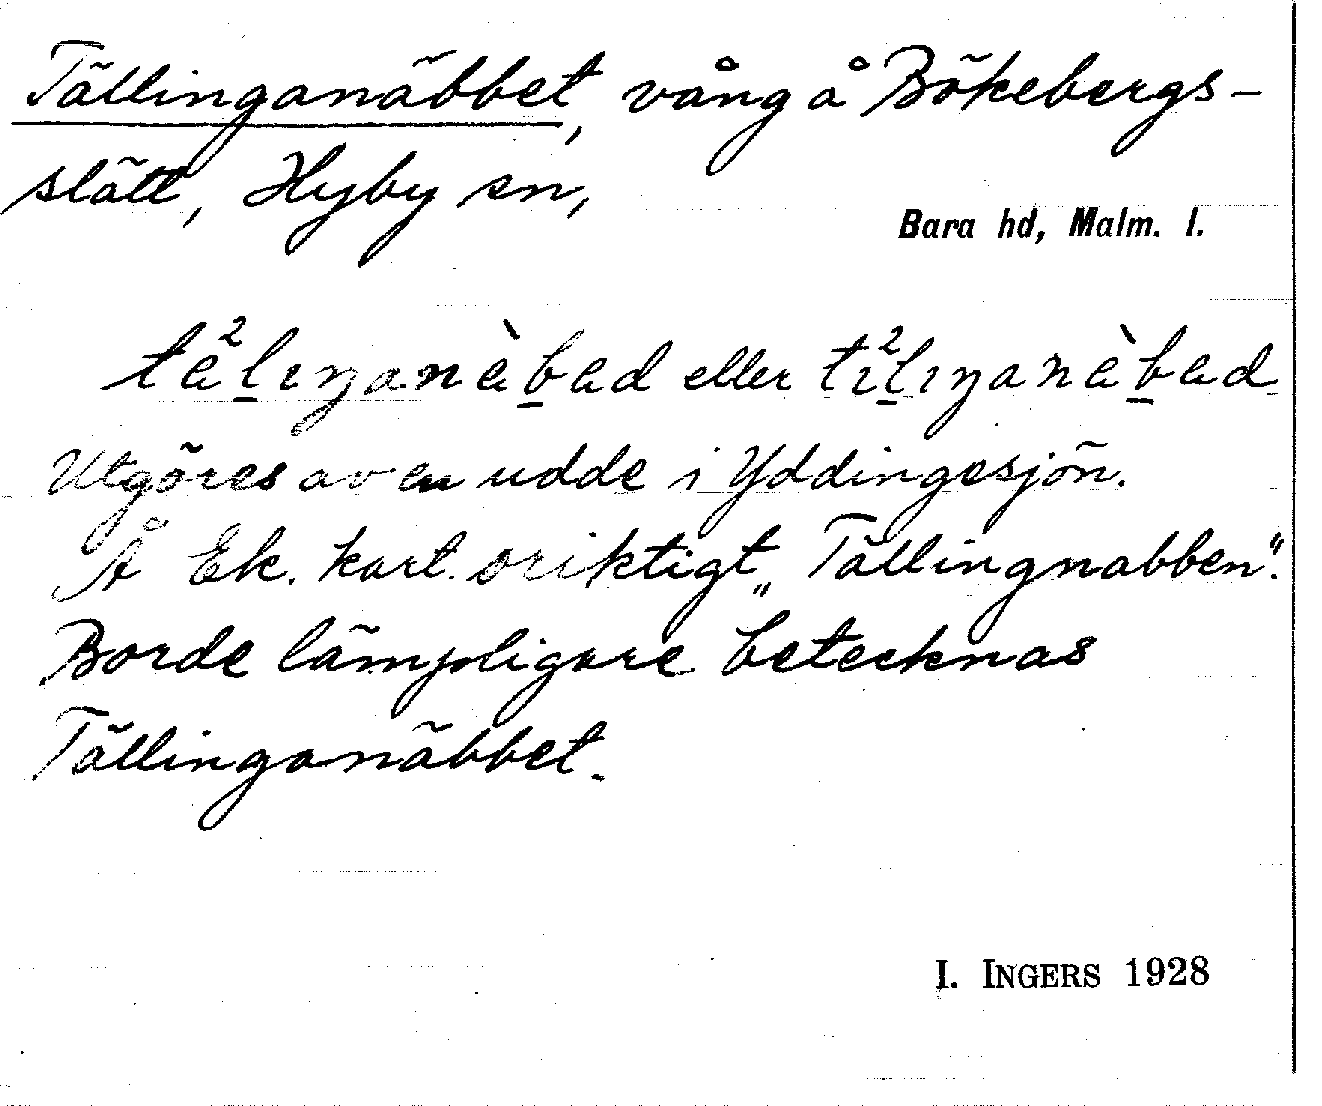 Tällinganäbbet, vång å Bökebergs-
slätt, Hyby sn,
Bara hd, Malm. l.
tä²lıŋanàbad eller tı²lıŋanàbad
Utgöres av en udde i Yddingesjön.
Å Ek. kart. oriktigt „Tällingnabben“.
Borde lämpligare betecknas
Tällinganäbbet.
I. INGERS 1928